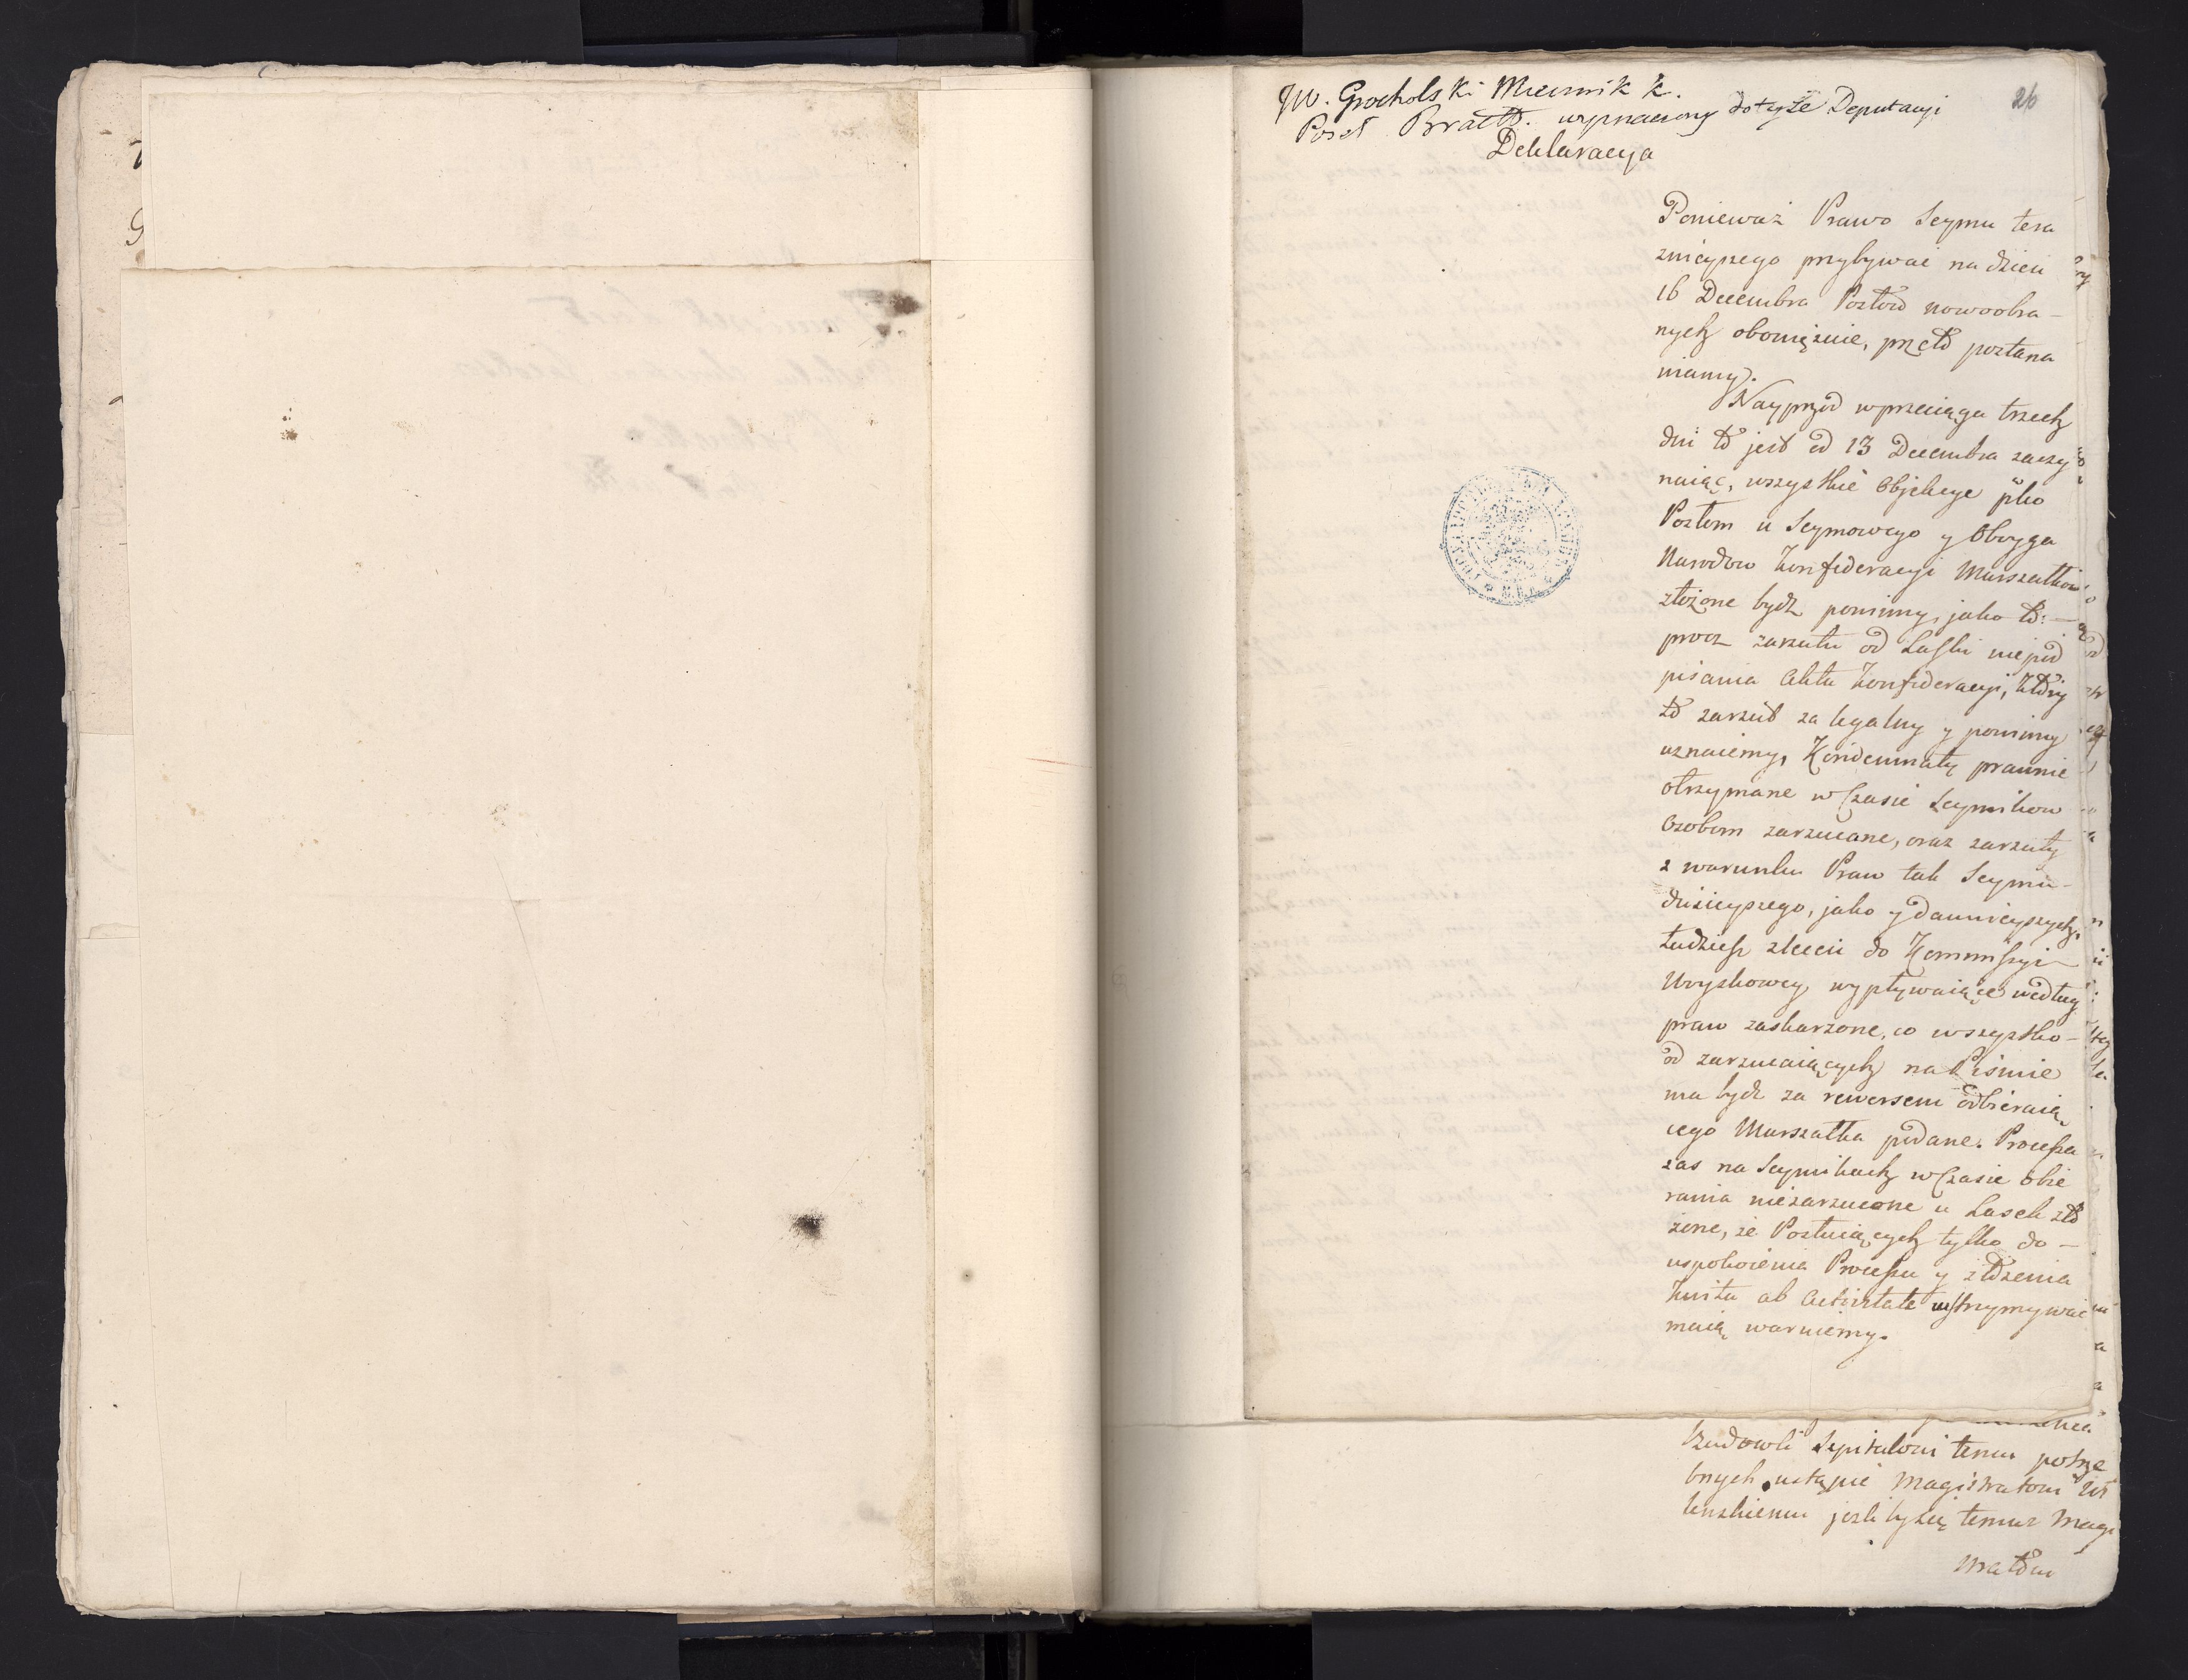 JW. Grocholski Miecznik k.
Poseł Bracłł. wyznaczony do teyże Deputacyi
26
Deklaracyja
Ponieważ Prawo Seymu tera
znieyszego przybywać na dzień
16 Decembra Posłów nowoobra-
nych obowiązuie, przeto postana
wiamy.
Nayprzód wprzeciągu trzech
dni to jest od 13 Decembra zaczy
naiąc, wszystkie Objekcye pko
Posłom u Seymowego y Oboyga
Narodow Konfederacyi Marszałkow
złożone bydź powinny, jako to: -
procz zarzutu od Laski niepod
pisania Aktu Konfederacyi, który
to zarzut za legalny y powinny
uznaiemy, Kondemnaty prawnie
otrzymane w Czasie Seymikow
Osobom zarzucane, oraz zarzuty
z warunku Praw tak Seymu-
dzisieyszego, jako y dawnieyszych,
tudziesz zlecen do Kommissyi
Woyskowey wypływaiące według
praw zaskarzone, co wszystko-
od zarzucaiących na Piśmie
ma bydź za rewersem odbieraią
cego Marszałka podane. Processa
zas na Seymikach w Czasie obie
rania niezarzucone u Lasek zło
zone, że Posłuiących tylko do -
uspokoienia Processu y złożenia
kwitu ab activitate wstrzymywac
maią waruiemy.
budowli Szpitalowi temu potrze
bnych ustąpić Magistratowi
jesliby się temuz Magi
stratowi